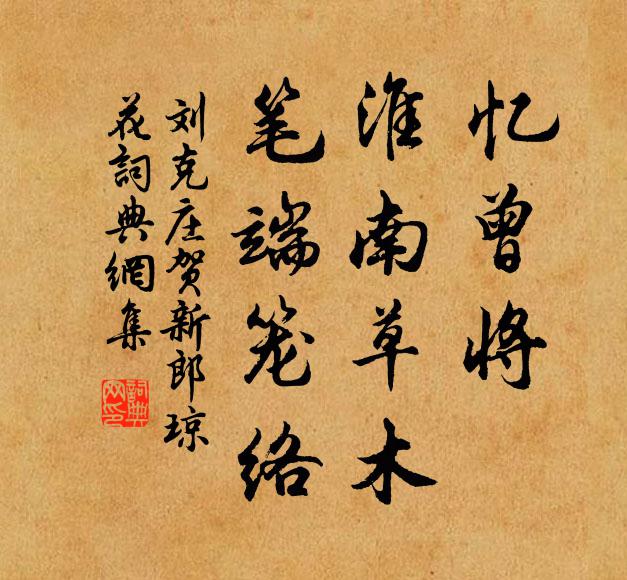 忆曾将
淮南草木
笔端笼络
刘克庄贺新郎琼
花詞典網集
詞典
网印